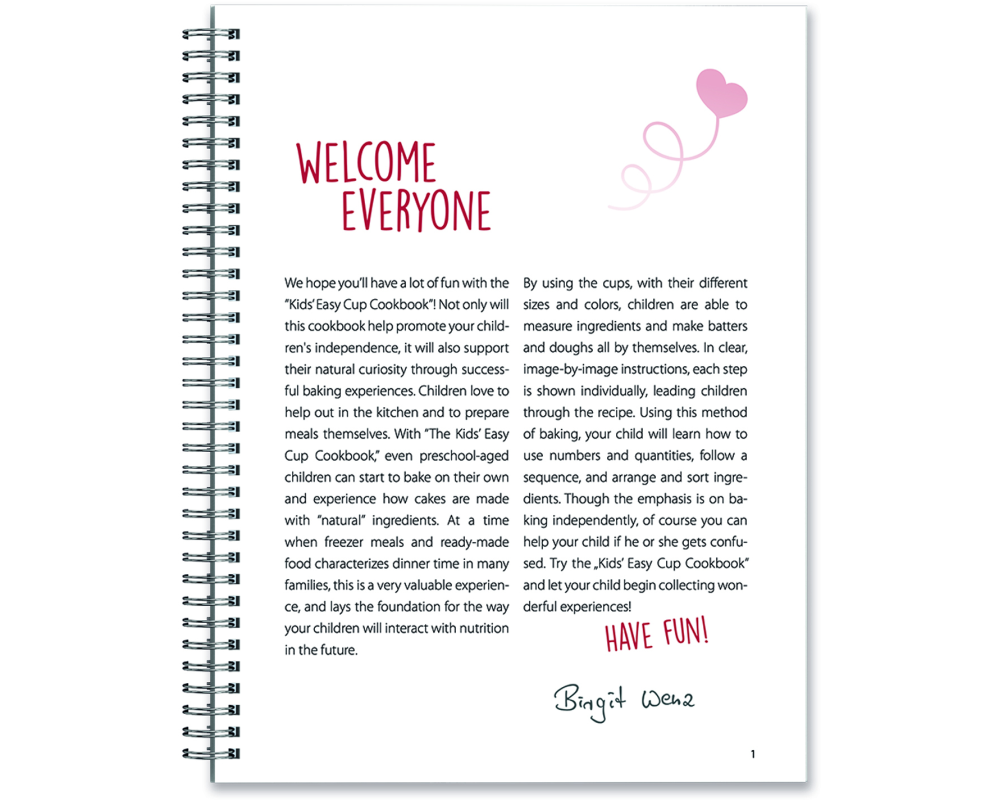 WELCOME
EVERYONE
We hope you'll have a lot of fun with the
"Kids' Easy Cup Cookbook"! Not only will
this cookbook help promote your child-
ren's independence, it will also support
their natural curiosity through success-
ful baking experiences. Children love to
help out in the kitchen and to prepare
meals themselves. With "The Kids' Easy
Cup Cookbook," even preschool-aged
children can start to bake on their own
and experience how cakes are made
with "natural" ingredients. At a time
when freezer meals and ready-made
food characterizes dinner time in many
families, this is a very valuable experien-
ce, and lays the foundation for the way
your children will interact with nutrition
in the future.
By using the cups, with their different
sizes and colors, children are able to
measure ingredients and make batters
and doughs all by themselves. In clear,
image-by-image instructions, each step
is shown individually, leading children
through the recipe. Using this method
of baking, your child will learn how to
use numbers and quantities, follow a
sequence, and arrange and sort ingre-
dients. Though the emphasis is on ba-
king independently, of course you can
help your child if he or she gets confu-
sed. Try the „Kids' Easy Cup Cookbook"
and let your child begin collecting won-
derful experiences!
HAVE FUN!
Birgit Wenz
1